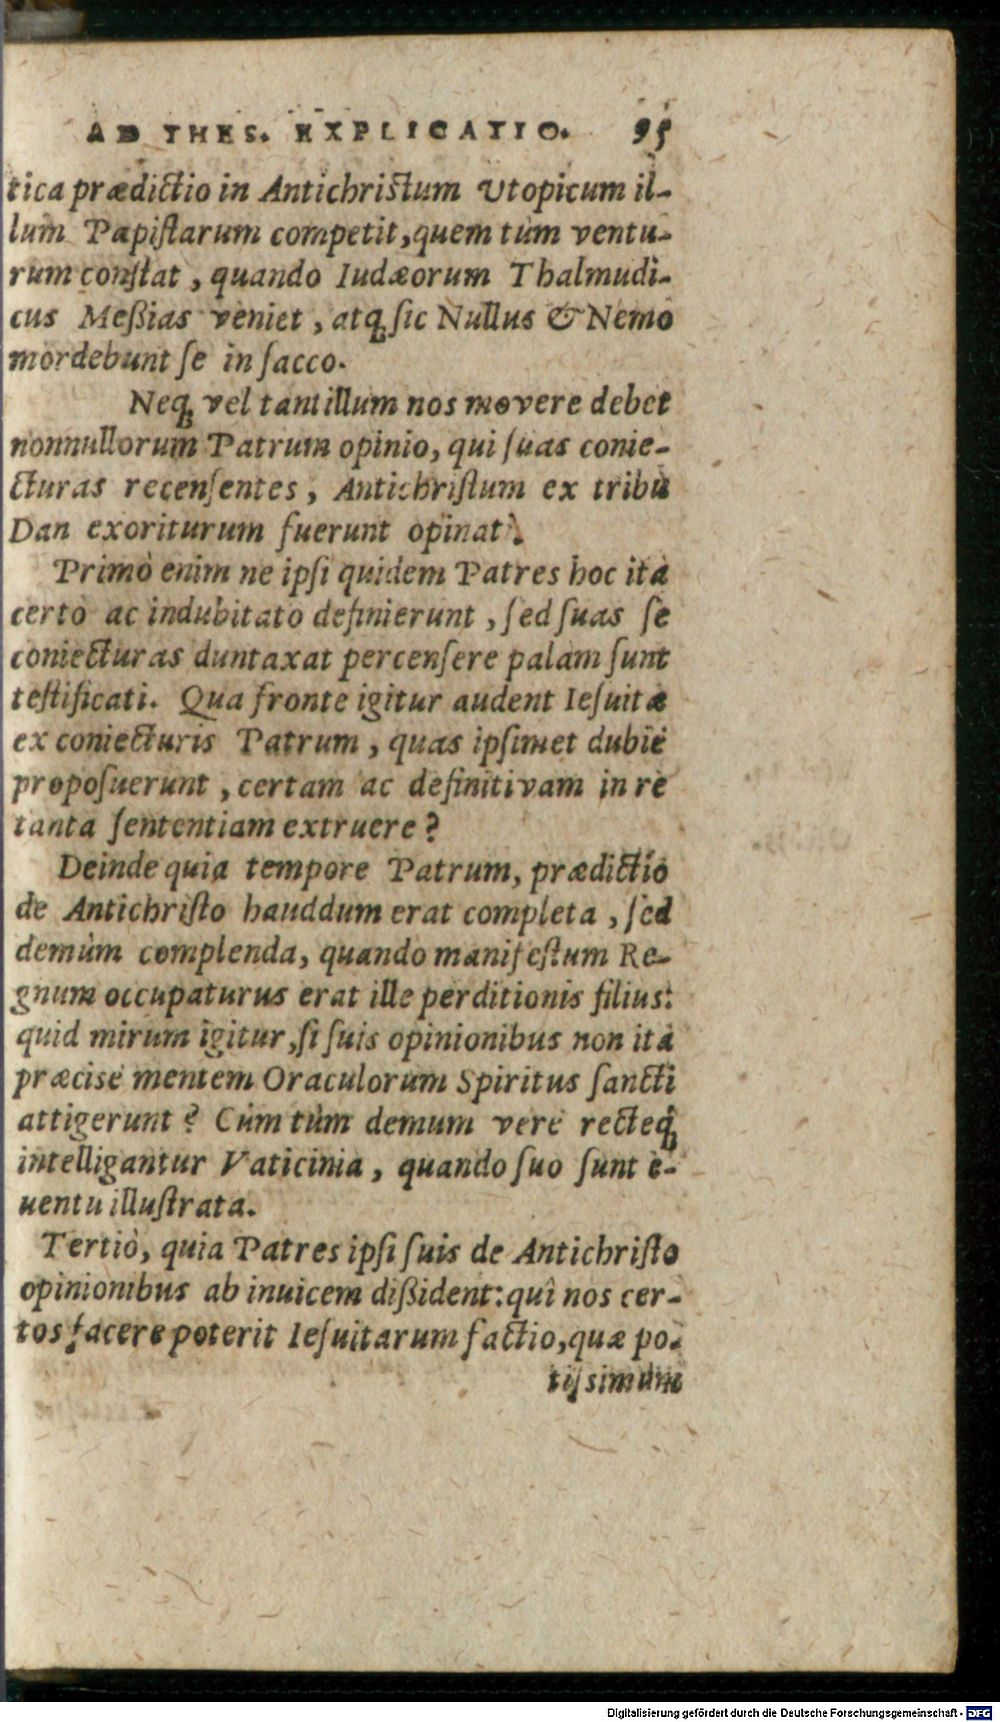 AD THES. EXPLICATIO. 95
tica prædictio in Antichriſtum Utopicum il-
lum Papiſtarum competit, quem tùm ventu-
rum conſtat, quando Iudæorum Thalmudi-
cus Meßias veniet, atq́; ſic Nullus & Nemo
mordebunt ſe in ſacco.
Neq́; vel tantillum nos movere debet
nonnullorum Patrum opinio, qui ſuas conie-
cturas recenſentes, Antichriſtum ex tribu
Dan exoriturum fuerunt opinati.
Primò enim ne ipſi quidem Patres hoc ità
certò ac indubitato definierunt, ſed ſuas ſe
coniecturas duntaxat percenſere palam ſunt
teſtificati. Qua fronte igitur audent Ieſuitæ
ex coniecturis Patrum, quas ipſimet dubiè
propoſuerunt, certam ac definitivam in re
tanta ſententiam extruere?
Deinde quia tempore Patrum, prædictio
de Antichriſto hauddum erat completa, ſed
demùm complenda, quando manifeſtum Re-
gnum occupaturus erat ille perditionis filius:
quid mirum igitur, ſi ſuis opinionibus non ità
præcisè mentem Oraculorum Spiritus ſancti
attigerunt? Cùm tùm demum verè recteq́;
intelligantur Vaticinia, quando ſuo ſunt e-
uentu illuſtrata.
Tertiò, quia Patres ipſi ſuis de Antichriſto
opinionibus ab inuicem dißident: quî nos cer-
tos facere poterit Ieſuitarum factio, quæ po-
tiſsimùm
Digitalisierung gefördert durch die Deutsche Forschungsgemeinschaft - DFG